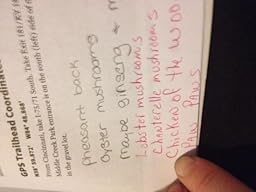 GPS Trailhead Coordinates
N38° 59.872' W84°
From Cincinnati, take I-75/71 South. Take Exit 181/KY 18
Middle Creek Park entrance is on the north (left) side of
in the gravel lot.
Pheasant back
Oyster mushrooms
maybe ginseng &
Lobster mushrooms
Chanterelle mushrooms
Chicken of the WOOD
Paw Paws